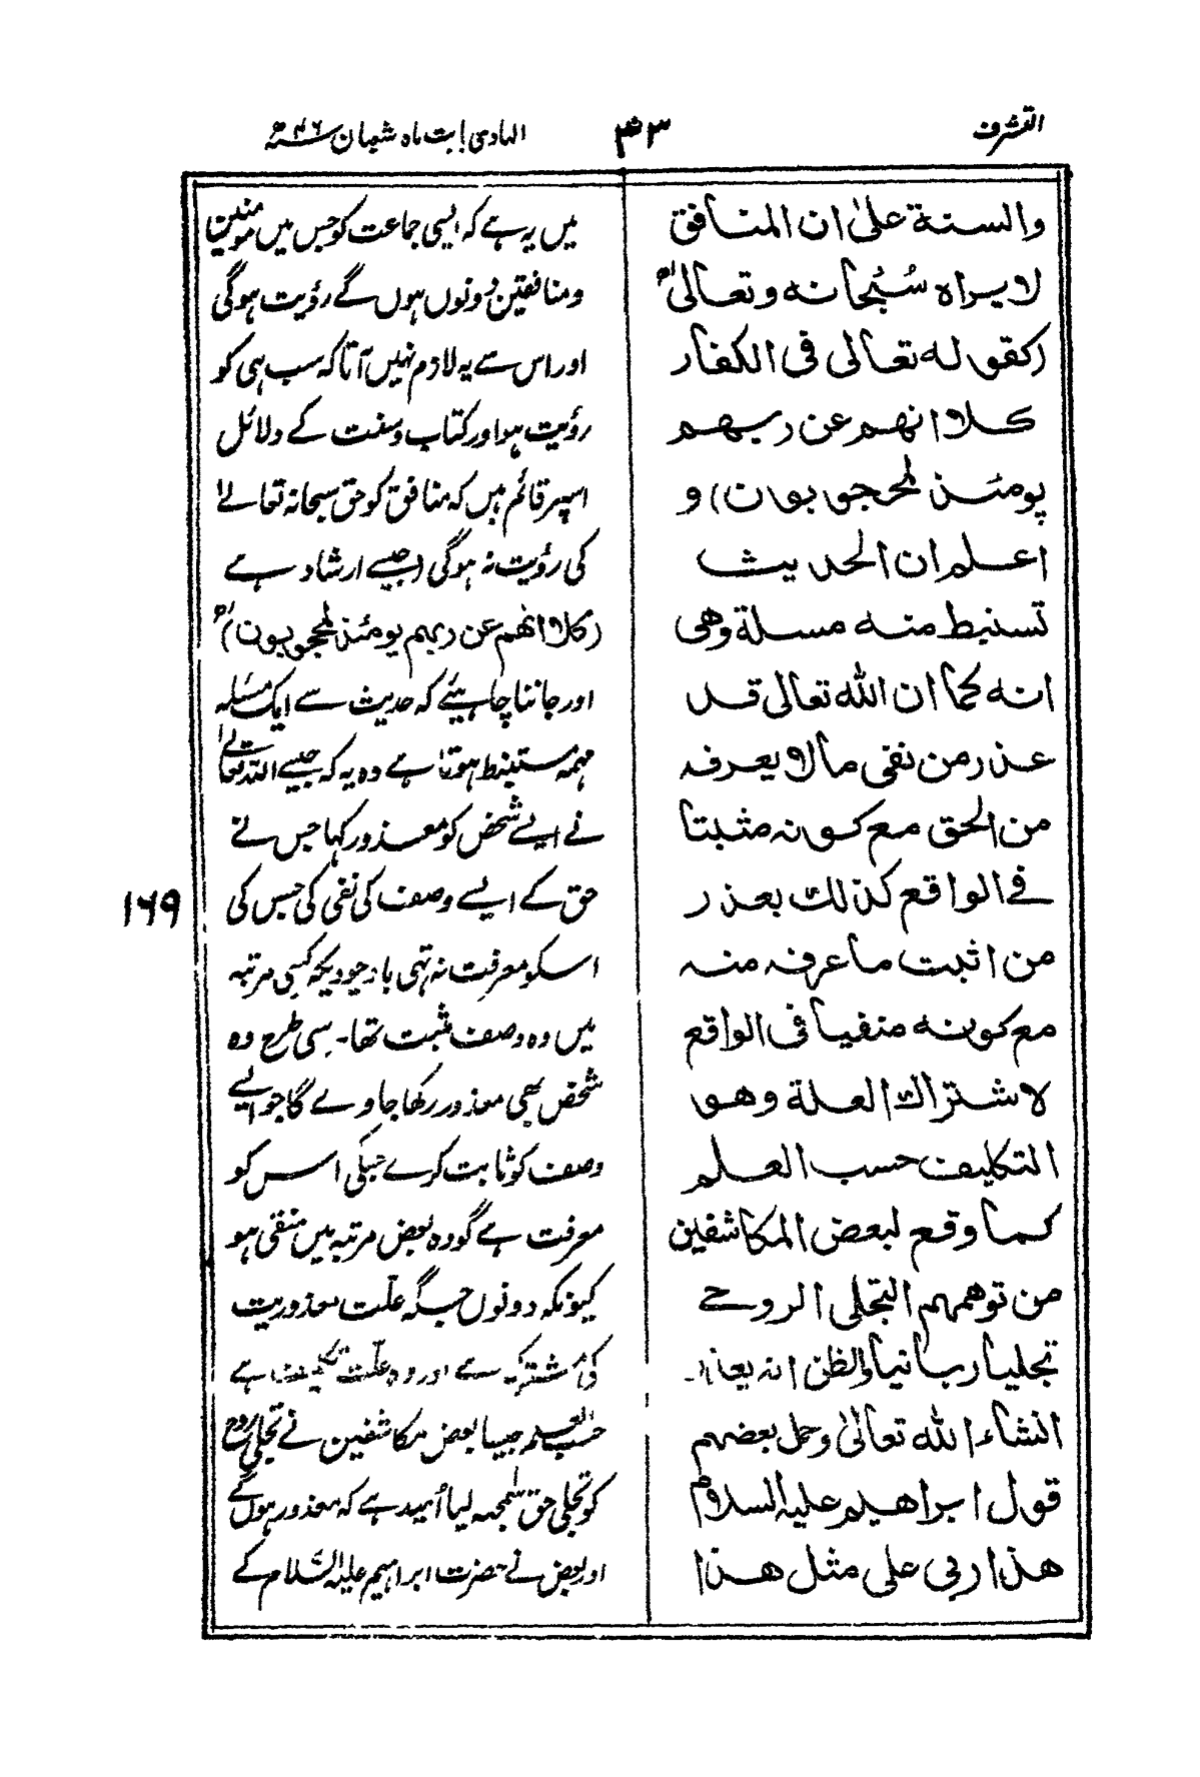 التشرف
۴۳
الہادی بابت ماہ شعبان ۱۳۴۶ھ
والسنة علیٰ ان المنافق
لا یراہ سُبحانه وتعالیٰ"
(کقوله تعالی فی الکفار
کلا انهم عن ربهم
یومئذ لمحجوبون) و
اعلم ان الحدیث
تستنبط منه مسلة وهی
انه کما ان الله تعالی قد
عذر من نفی مالا یعرفه
من الحق مع کونه مثبتا
فے الواقع کذلك یعذر
من اثبت ما عرفه منه
مع کونه منفیا فی الواقع
لاشتراك العلة وهو
التکلیف حسب العلم
کما وقع لبعض المکاشفین
من توهمهم التجلی الروحے
تجلیا ربانیا والظن انه یعذر
انشاء الله تعالیٰ وحمل بعضهم
قول ابراهیم علیه السلام
هذا ربی علی مثل هذا
میں یہ ہے کہ ایسی جماعت کو جس میں مومنین
ومنافقین دونوں ہوں گے رؤیت ہوگی
اور اس سے یہ لازم نہیں آتا کہ سب ہی کو
رؤیت ہو اور کتاب وسنت کے دلائل
اسپر قائم ہیں کہ منافق کو حق سبحانہ تعالےٰ
کی رؤیت نہ ہوگی (جیسے ارشاد ہے
(کلا انھم عن ربہم یومئذ لمحجوبون)"
اور جاننا چاہیئے کہ حدیث سے ایک مسئلہ
مہمہ مستنبط ہوتا ہے وہ یہ کہ جیسے اللہ تعالےٰ
نے ایسے شخص کو معذور رکہا جس نے
حق کے ایسے وصف کی نفی کی جس کی
۱۶۹
اسکو معرفت نہ تہی باوجودیکہ کسی مرتبہ
میں وہ وصف مثبت تھا۔ اسی طرح وہ
شخص بھی معذور رکھا جاوے گا جو ایسے
وصف کو ثابت کرے جسکی اس کو
معرفت ہے گو وہ بعض مرتبہ میں منفی ہو
کیونکہ دونوں جگہ علّت معذوریت
کی مشترک ہے اور وہ علّت تکلیف ہے
حسب العلم جیسا بعض مکاشفین نے تجلی روح
کو تجلی حق سمجہہ لیا اُمید ہے کہ معذور ہوں گے
اور بعض نے حضرت ابراہیم علیہ السّلام کے